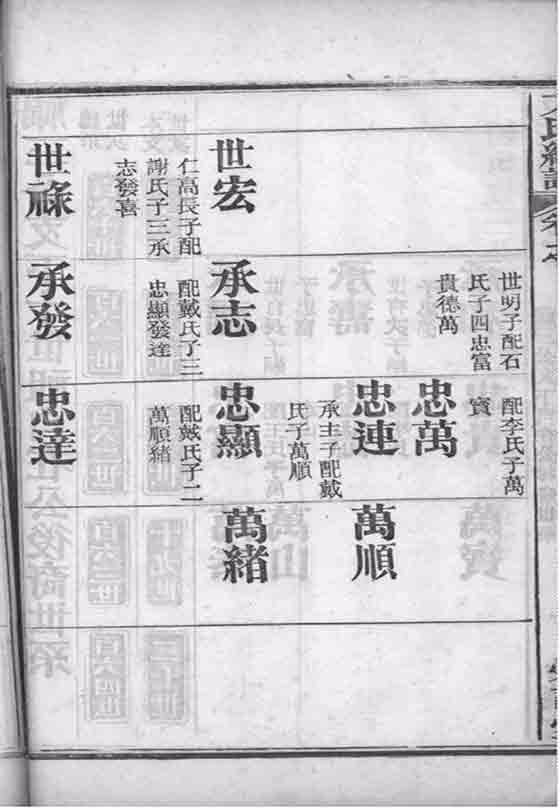 世明子配石
氏子四忠富
貴德萬
配李氏子萬
寶
忠萬
忠連
承主子配戴
氏子萬順
萬順
世宏
仁高長子配
謝氏子三承
志發喜
承志
配戴氏子三
忠顯發達
忠顯
配戴氏子二
萬順緒
萬緒
世祿
承發
忠達